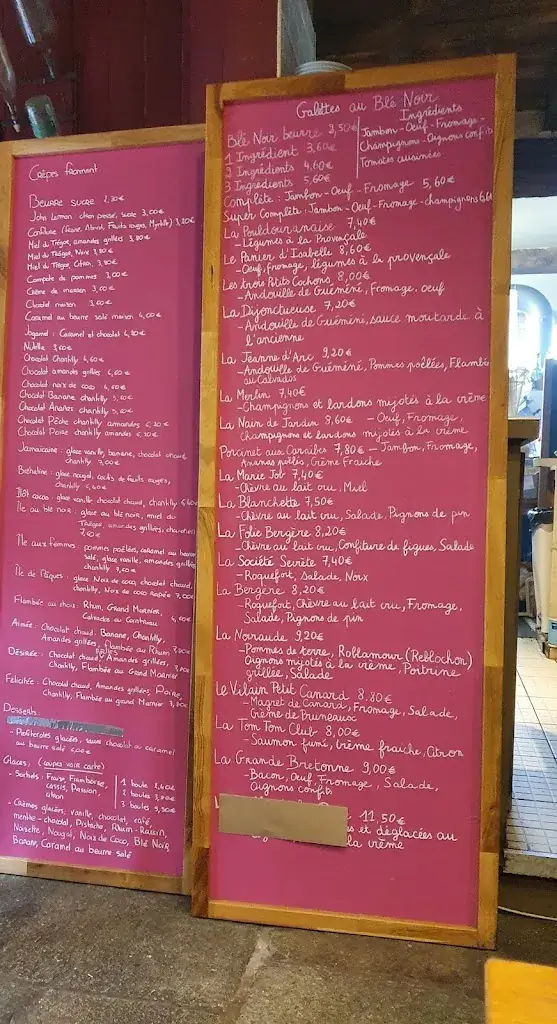 Crêpes froment
Beurre sucre 2,30€
John Lemon : citron pressé, sucre 3,00€
Confiture (Fraise, Abricot, Fruits rouges, Myrtille) 3,20€
Miel du Trégor, amandes grillées 3,80€
Miel du Trégor, Noix 3,80€
Miel du Trégor, Citron, 3,80€
Compote de pommes 3,00€
Crème de marron 3,00€
Chocolat maison 3,60€
Caramel au beurre salé maison 4,00€
Caramel et chocolat 4,80€
Nutella 3,60€
Chocolat Chantilly 4,60€
Chocolat amandes grillées 4,60€
Chocolat noix de coco 4,60€
Chocolat Banane chantilly 5,60€
Chocolat Ananas chantilly 5,60€
Chocolat Pêche chantilly amandes 6,30€
Chocolat Poire chantilly amandes 6,30€
Jamaïcaine : glace vanille, banane, chocolat chaud
chantilly 7,00€
glace nougat, coulis de fruits rouges,
chantilly
coco : glace vanille, chocolat chaud, chantilly 6,60€
Île au blé noir : glace au blé noir, miel du
Trégor, amandes grillées, chantilly
7,60€
Île aux femmes : pommes poêlées, caramel au beurre
salé, glace vanille, amandes grillées
chantilly 7,60€
Île de Pâques : glace Noix de coco, chocolat chaud,
chantilly, Noix de coco rapée 7,00€
Flambée au choix : Rhum, Grand Marnier,
Calvados ou Cointreau
Aimée : Chocolat chaud, Banane, Chantilly,
Amandes grillées, flambée au Rhum
Désirée : Chocolat chaud, Amandes grillées,
Chantilly, Flambée au Grand Marnier
Félicitée : Chocolat chaud, Amandes grillées, Poire,
Chantilly, Flambée au grand Marnier
Desserts
- Profiteroles glacées, sauce chocolat ou caramel
au beurre salé
Glaces : (coupes voir carte)
- Sorbets : Fraise, Framboise,
cassis, Passion,
citron
1 boule 2,60€
2 boules 3,80€
3 boules 5,30€
- Crèmes glacées, vanille, chocolat, café,
menthe-chocolat, Pistache, Rhum-Raisin,
Noisette, Nougat, Noix de Coco, Blé Noir,
Banane, Caramel au beurre salé
Galettes au Blé Noir
Blé Noir beurre 2,50€
1 Ingrédient 3,60€
2 Ingrédients 4,60€
3 Ingrédients 5,60€
Ingrédients
Jambon - Oeuf - Fromage -
Champignons - Oignons confits
Tomates cuisinées
Complète : Jambon - Oeuf - Fromage 5,60€
Super Complète : Jambon - Oeuf - Fromage - champignons 6,60
La Pouldouranaise 7,40€
- Légumes à la Provençale
Le Panier d'Isabelle 8,60€
- Oeuf, fromage, légumes à la provençale
Les trois Petits Cochons 8,00€
- Andouille de Guéméné, Fromage, oeuf
La Dijonctueuse 7,20€
- Andouille de Guéméné, sauce moutarde à
l'ancienne
La Jeanne d'Arc 9,20€
- Andouille de Guéméné, Pommes poêllées, Flambée
au Calvados
La Merlin 7,40€
- Champignons et lardons mijotés à la crème
La Nain de Jardin 8,60€ - Oeuf, Fromage,
Champignons et lardons mijotés à la crème
Porcinet aux Caraïbes 7,80€ - Jambon, Fromage,
Ananas poêlés, Crème Fraîche
La Marie Jol 7,40€
- Chèvre au lait cru, Miel
La Blanchette 7,50€
- Chèvre au lait cru, Salade, Pignons de pin
La Folie Bergère 8,20€
- Chèvre au lait cru, Confiture de figues, Salade
La Société Secrète 7,40€
- Roquefort, Salade, Noix
La Bergère 8,20€
- Roquefort, Chèvre au lait cru, Fromage,
Salade, Pignons de pin
La Noiraude 9,20€
- Pommes de terre, Roblamour (Reblochon)
Oignons mijotés à la crème, Poitrine
grillée, Salade
Le Vilain Petit Canard 8,80€
- Magret de Canard, Fromage, Salade,
Crème de Pruneaux
La Tom Tom Club 8,00€
- Saumon fumé, Crème fraîche, Citron
La Grande Bretonne 9,00€
- Bacon, Oeuf, Fromage, Salade,
Oignons confits
11,50€
et déglacées au
la crème